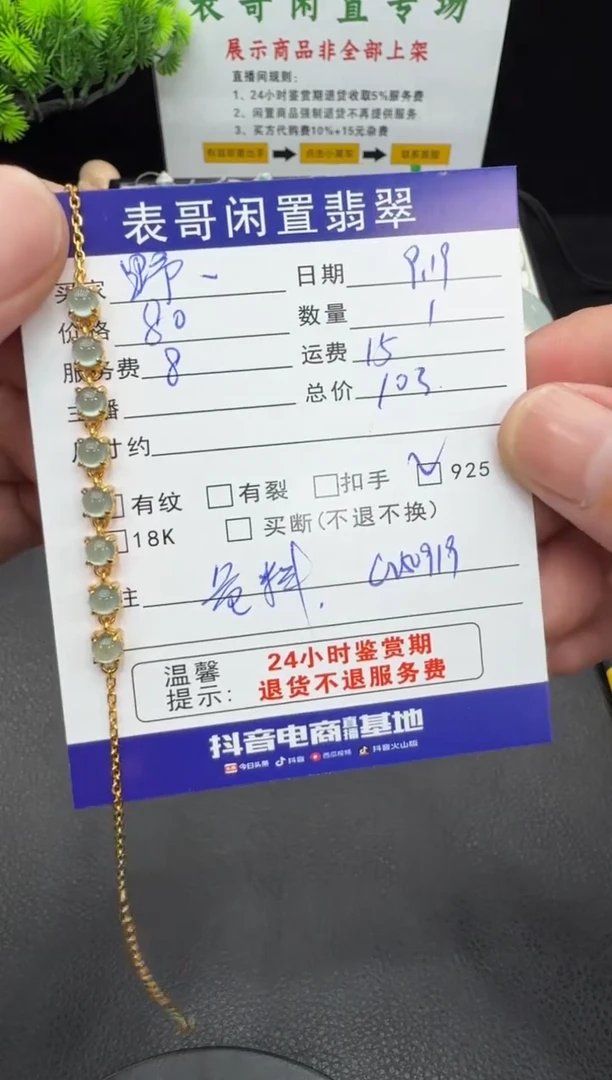 表哥闲置专场
展示商品非全部上架
直播间规则：
1、24小时鉴赏期退货收取5%服务费
2、闲置商品强制退货不再提供服务
3、买方代购费10%+15元杂费
表哥闲置翡翠
买家 野一 日期 9.19
价格 80 数量 1
服务费 8 运费 15
主播 总价 103
尺寸约
有纹 有裂 扣手 925
18K 买断(不退不换)
注
温馨 24小时鉴赏期
提示: 退货不退服务费
抖音电商直播基地
今日头条 抖音 西瓜视频 抖音火山版